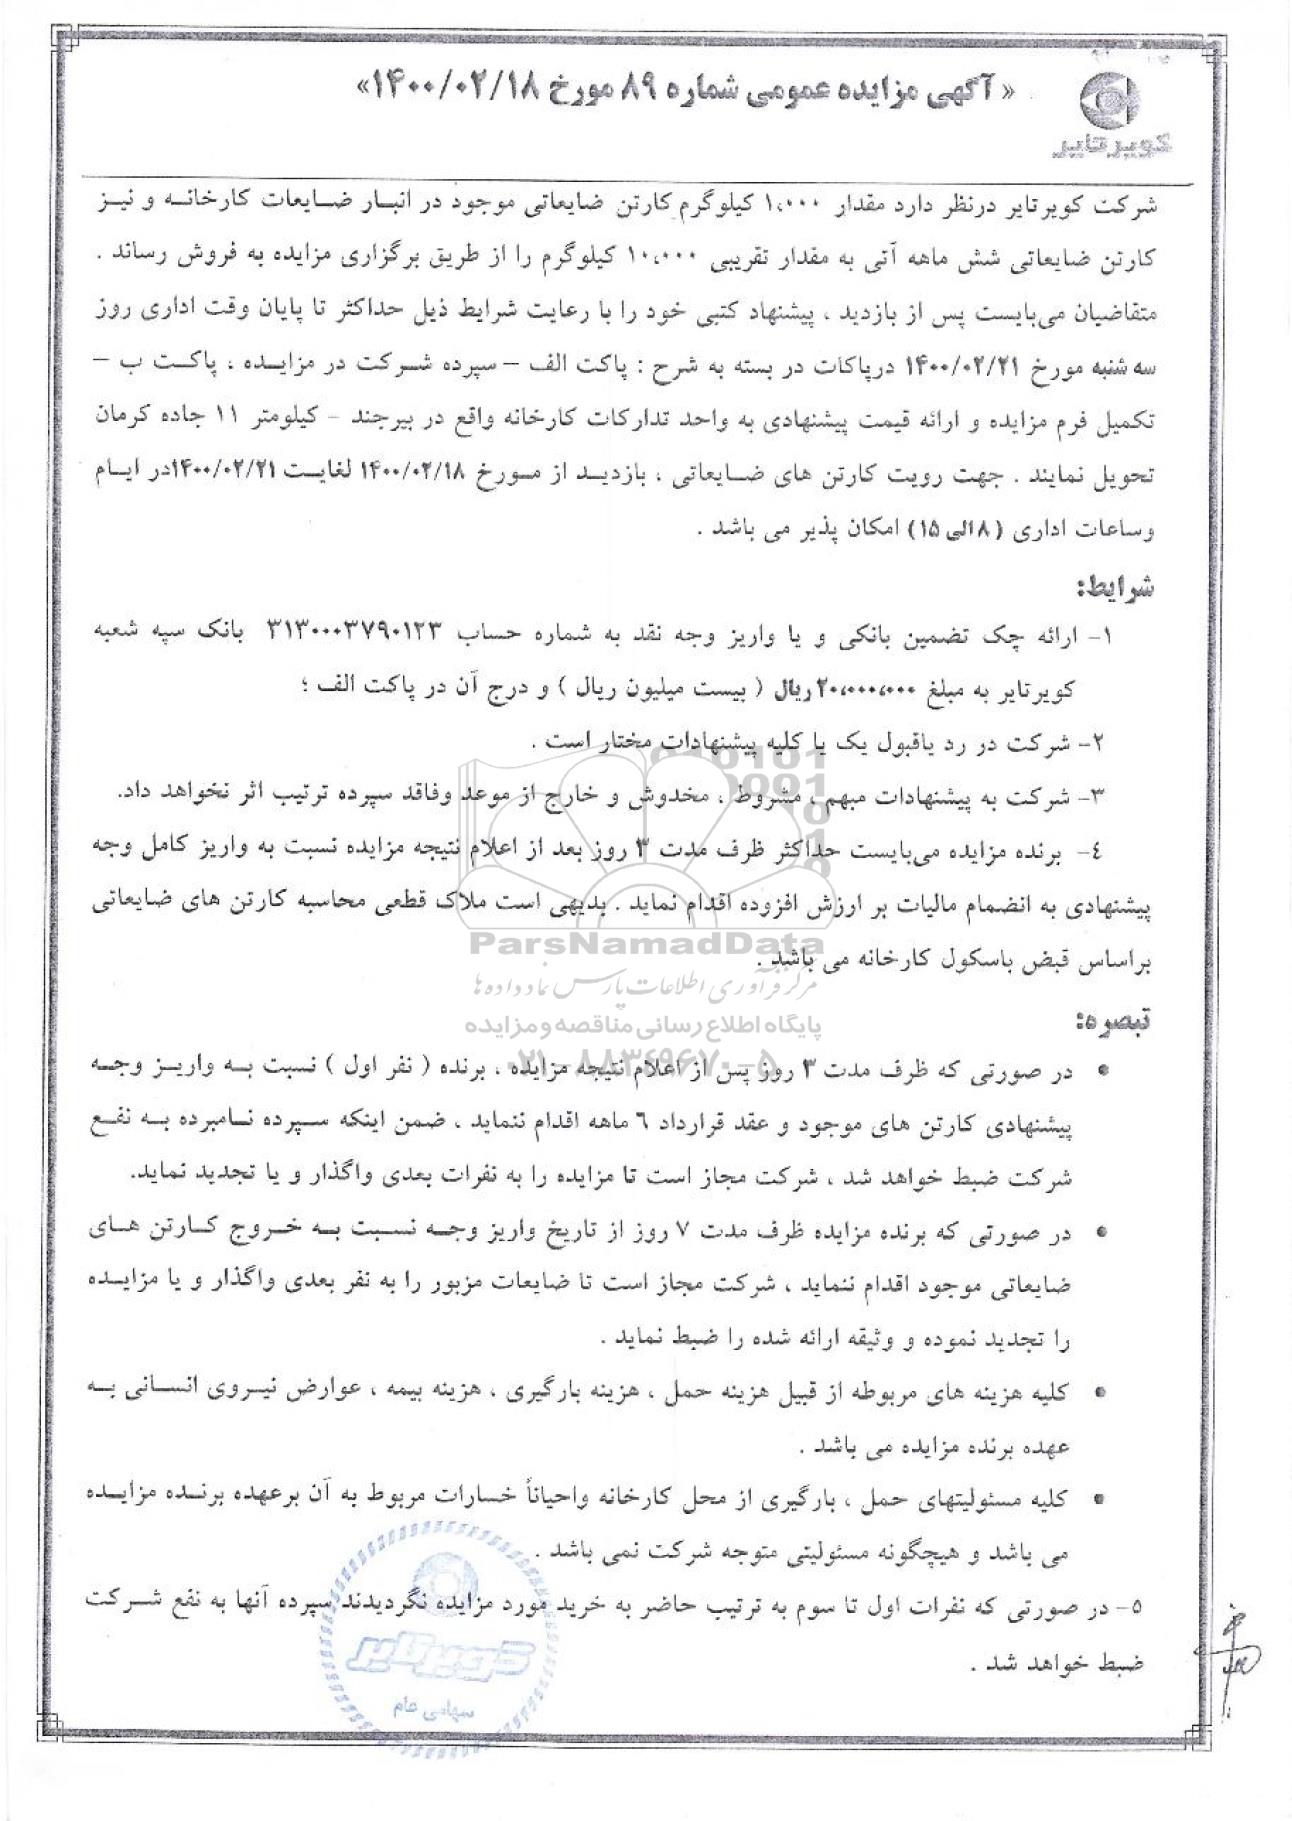 « آگهی مزایده عمومی شماره ۸۹ مورخ ۱۴۰۰/۰۲/۱۸»
کویرتایر
شرکت کویرتایر درنظر دارد مقدار ۱،۰۰۰ کیلوگرم کارتن ضایعاتی موجود در انبار ضایعات کارخانه و نیز
کارتن ضایعاتی شش ماهه آتی به مقدار تقریبی ۱۰،۰۰۰ کیلوگرم را از طریق برگزاری مزایده به فروش رساند .
متقاضیان می‌بایست پس از بازدید ، پیشنهاد کتبی خود را با رعایت شرایط ذیل حداکثر تا پایان وقت اداری روز
سه شنبه مورخ ۱۴۰۰/۰۲/۲۱ درپاکات در بسته به شرح : پاکت الف – سپرده شرکت در مزایده ، پاکت ب –
تکمیل فرم مزایده و ارائه قیمت پیشنهادی به واحد تدارکات کارخانه واقع در بیرجند - کیلومتر ۱۱ جاده کرمان
تحویل نمایند . جهت رویت کارتن های ضایعاتی ، بازدید از مورخ ۱۴۰۰/۰۲/۱۸ لغایت ۱۴۰۰/۰۲/۲۱در ایام
وساعات اداری (۸ الی ۱۵) امکان پذیر می باشد .
شرایط:
۱- ارائه چک تضمین بانکی و یا واریز وجه نقد به شماره حساب ۳۱۳۰۰۰۳۷۹۰۱۲۳ بانک سپه شعبه
کویرتایر به مبلغ ۲۰،۰۰۰،۰۰۰ ریال ( بیست میلیون ریال ) و درج آن در پاکت الف ؛
۲- شرکت در رد یاقبول یک یا کلیه پیشنهادات مختار است .
۳- شرکت به پیشنهادات مبهم ، مشروط ، مخدوش و خارج از موعد وفاقد سپرده ترتیب اثر نخواهد داد.
٤- برنده مزایده می‌بایست حداکثر ظرف مدت ۳ روز بعد از اعلام نتیجه مزایده نسبت به واریز کامل وجه
پیشنهادی به انضمام مالیات بر ارزش افزوده اقدام نماید . بدیهی است ملاک قطعی محاسبه کارتن های ضایعاتی
ParsNamadData
براساس قبض باسکول کارخانه می باشد .
مرکز فرآوری اطلاعات پارس نماد داده ها
پایگاه اطلاع رسانی مناقصه و مزایده
تبصره:
۰۲۱-۸۸۳۴۹۶۷۰-۵
• در صورتی که ظرف مدت ۳ روز پس از اعلام نتیجه مزایده ، برنده ( نفر اول ) نسبت به واریز وجه
پیشنهادی کارتن های موجود و عقد قرارداد ٦ ماهه اقدام ننماید ، ضمن اینکه سپرده نامبرده به نفع
شرکت ضبط خواهد شد ، شرکت مجاز است تا مزایده را به نفرات بعدی واگذار و یا تجدید نماید.
• در صورتی که برنده مزایده ظرف مدت ۷ روز از تاریخ واریز وجه نسبت به خروج کارتن های
ضایعاتی موجود اقدام ننماید ، شرکت مجاز است تا ضایعات مزبور را به نفر بعدی واگذار و یا مزایده
را تجدید نموده و وثیقه ارائه شده را ضبط نماید .
• کلیه هزینه های مربوطه از قبیل هزینه حمل ، هزینه بارگیری ، هزینه بیمه ، عوارض نیروی انسانی به
عهده برنده مزایده می باشد .
• کلیه مسئولیتهای حمل ، بارگیری از محل کارخانه واحیاناً خسارات مربوط به آن برعهده برنده مزایده
می باشد و هیچگونه مسئولیتی متوجه شرکت نمی باشد .
۵- در صورتی که نفرات اول تا سوم به ترتیب حاضر به خرید مورد مزایده نگردیدند سپرده آنها به نفع شرکت
ضبط خواهد شد .
کویرتایر
سهامی عام